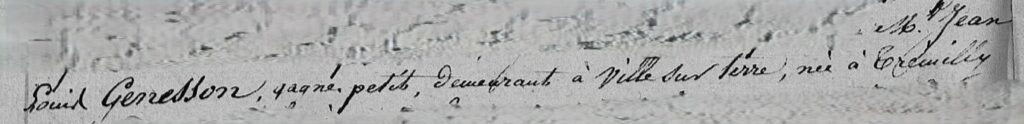 M.r Jean
Louis Genesson, gagne petit, demeurant à Ville sur terre, née à Tremilly